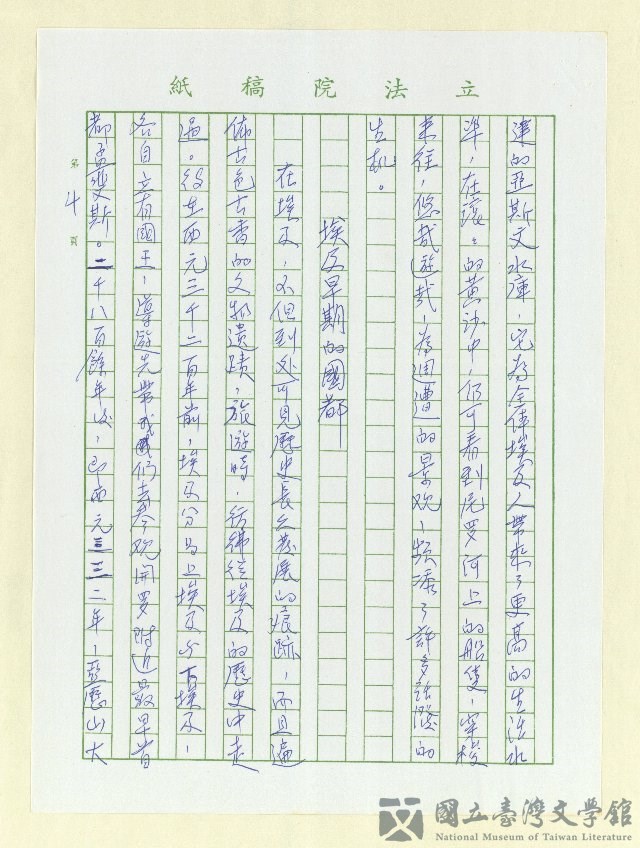 立法院稿紙
達的亞斯文水庫，它為全体埃及人帶來了更高的生活水
準，在滾滾的黃沙中，仍可看到尼罗河上的船隻，穿梭
來往，悠哉遊哉，為週遭的景观，頻添了許多活潑的
生机。
埃及早期的國都
在埃及，不但到处可見歷史長久發展的痕跡，而且遍
佈古色古香的文物遺蹟，旅遊時，彷彿從埃及的歷史中走
過。後在西元三千二百年前，埃及分為上埃及与下埃及，
各自立有國王，導遊先帶我們去參观開罗附近最早首
都孟斐斯。二千八百餘年後，即西元三三二年，亞歷山大
第4頁
國立臺灣文學館
National Museum of Taiwan Literature